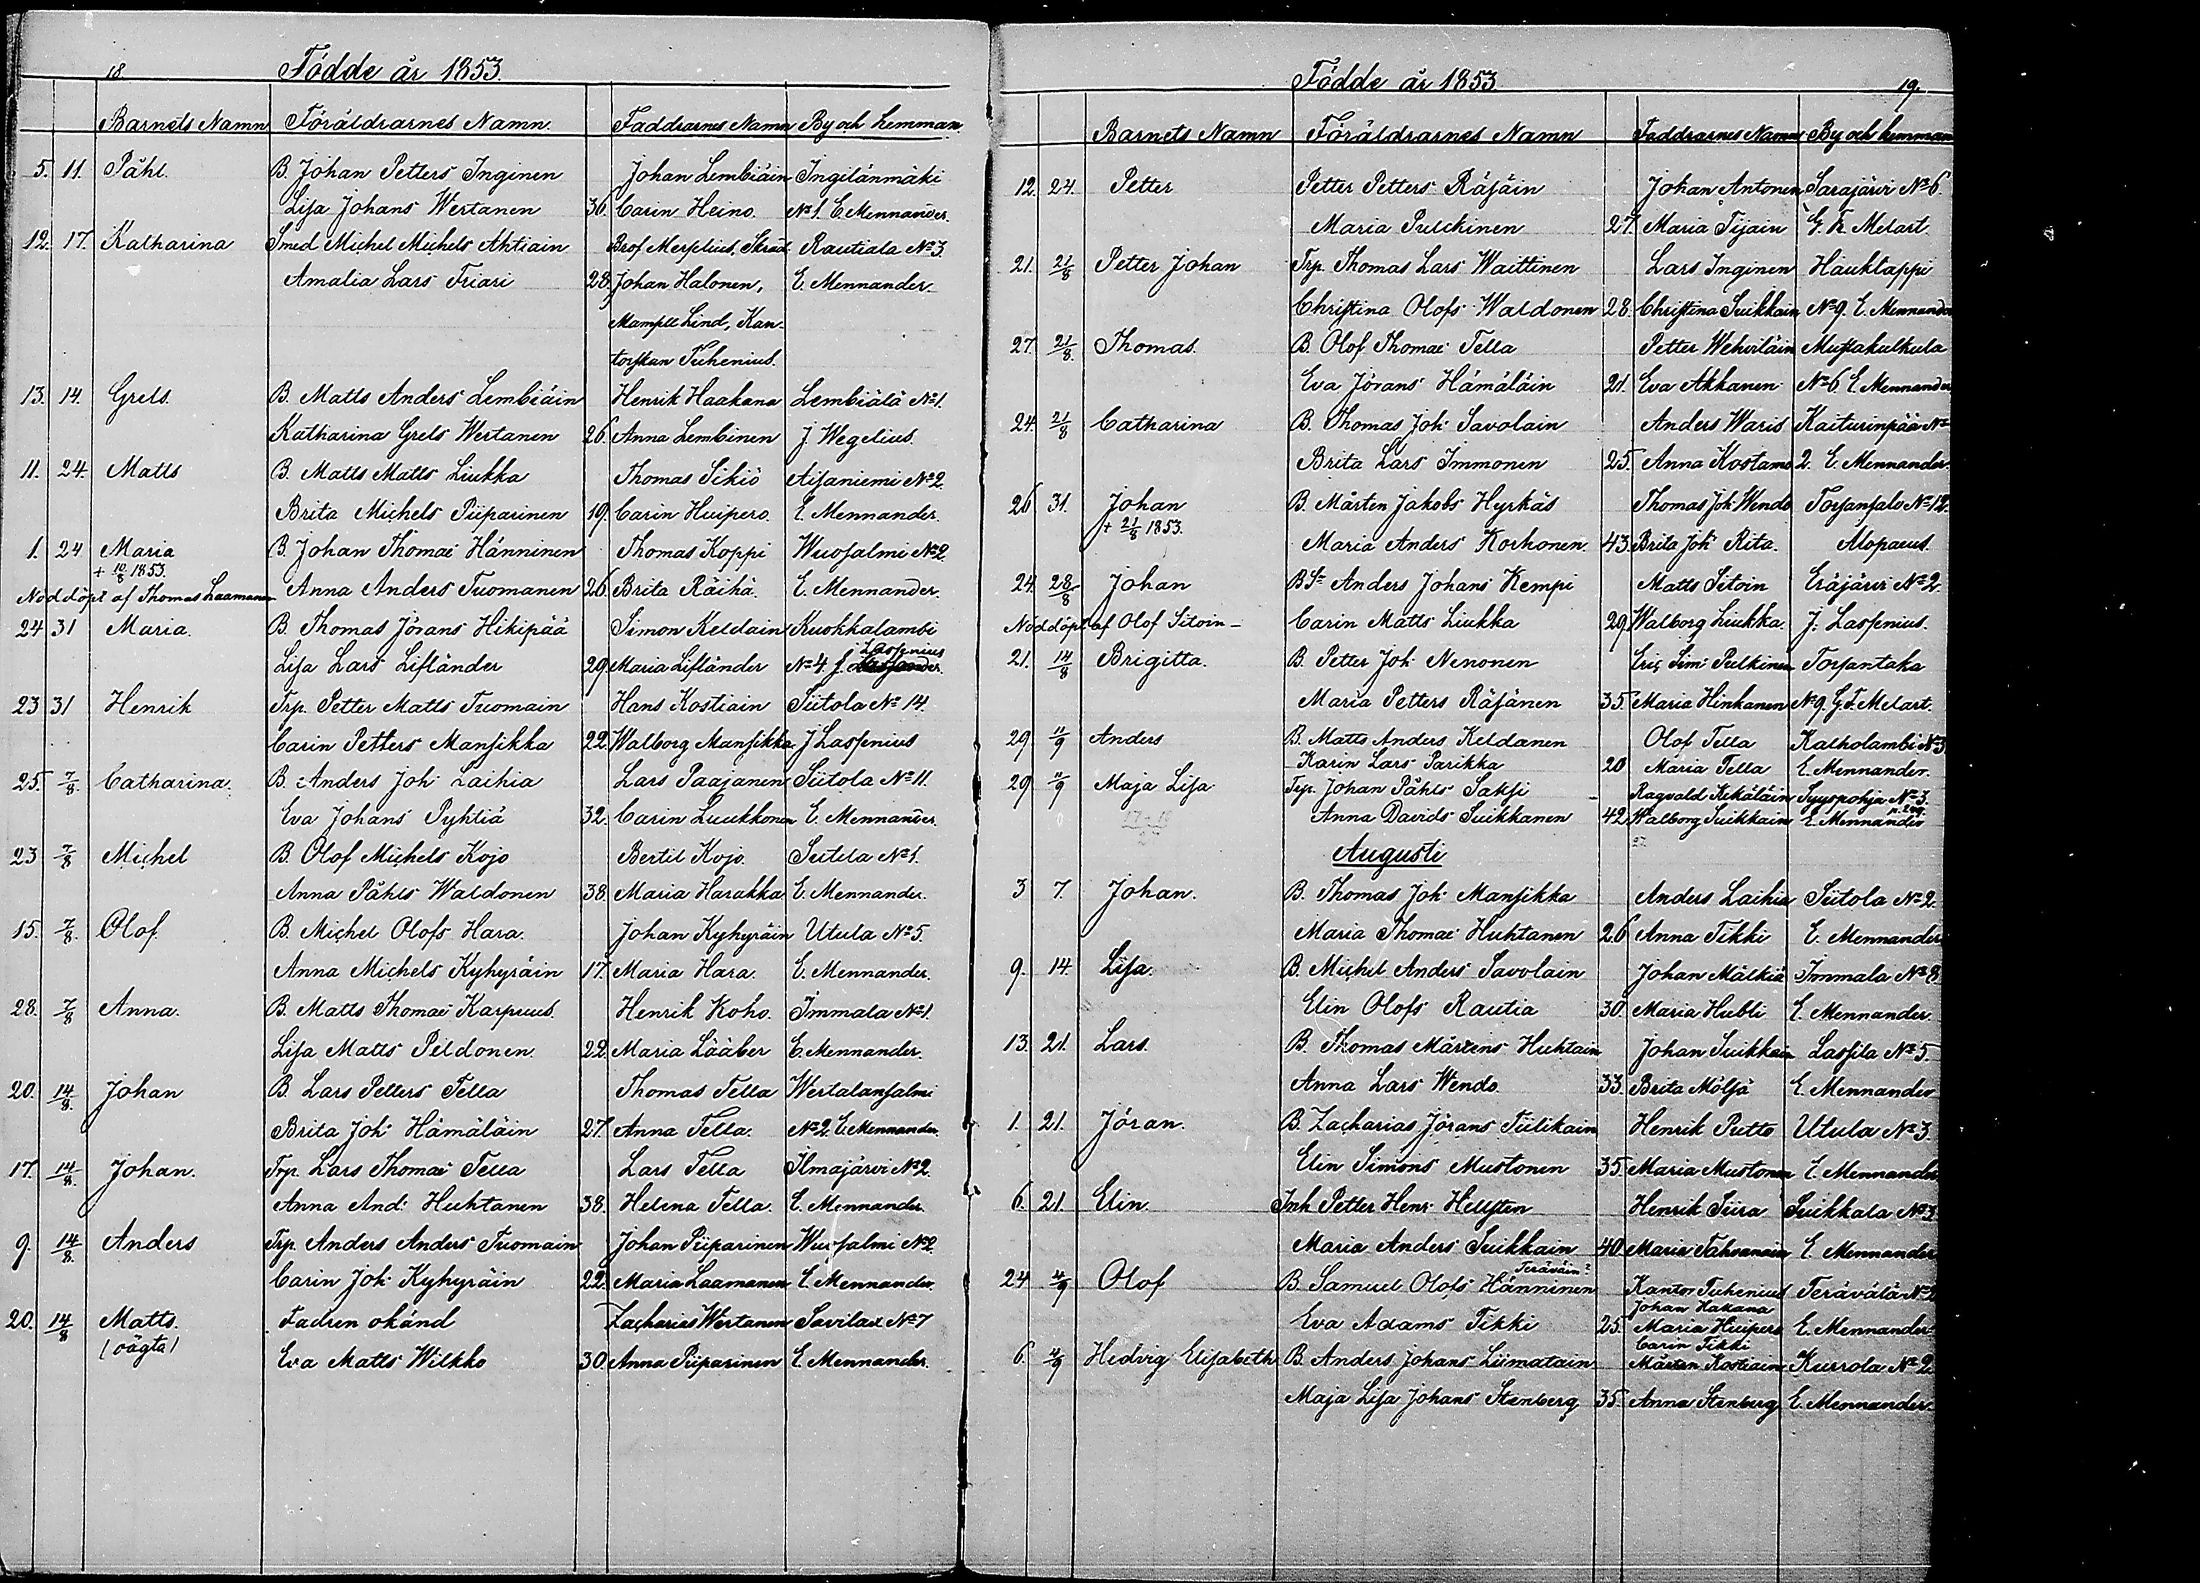 18. Födde år 1853.
Barnets Namn Föräldrarnes Namn. Faddrarnes Namn By och hemman.
5. 11. Påhl. B. Johan Petters Inginen Johan Lembiäin Ingilänmäki
Lisa Johans Wertanen 36. Carin Heino. No 1. E Mennander.
12. 17. Katharina Smed Michel Michels Ahtiain Rautiala No 3.
Amalia Lars Friari 28. Johan Halonen, E. Mennander.
Mamsell Lind, Kan-
torskan Tuhenius.
13. 14. Grels. B. Matts Anders Lembiäin Henrik Haakana Lembiälä No 1.
Katharina Grels Wertanen 26. Anna Lembinen J. Wegelius.
11. 24. Matts B. Matts Matts Liukka Thomas Sikiö Aisaniemi No 2.
Brita Michels Piiparinen 19. Carin Huipero. E. Mennander.
1. 24 Maria B. Johan Thomae Hänninen Thomas Koppi Wuosalmi No 2.
+ 10/8 1853.
Nöddöpt af Thomas Laamanen Anna Anders Tuomanen 26. Brita Räihä. E. Mennander.
24 31 Maria. B. Thomas Jörans Hikipää Simon Keldain Kuokkalambi
Lassenius
Lisa Lars Lifländer 29 Maria Lifländer No 4. J.
23 31 Henrik Trp. Petter Matts Tuomain Hans Kostiain Siitola No 14.
Carin Petters Mansikka 22. Walborg Mansikka J Lassenius
25. 7/8. Catharina. B. Anders Joh: Laihia Lars Paajanen Siitola No 11.
Eva Johans Pyhtiä 32. Carin Luukkonen E. Mennander.
23 7/8 Michel B. Olof Michels Kojo Bertil Kojo. Sutela No 1.
Anna Påhls Waldonen 38. Maria Harakka E. Mennander.
15. 7/8. Olof. B. Michel Olofs Hara. Johan Kyhyräin Utula No 5.
Anna Michels Kyhyräin 17. Maria Hara. E. Mennander.
28. 7/8 Anna. B. Matts Thomae Karpuus. Henrik Koho. Immala No 1.
Lisa Matts Pildonen. 22. Maria Lääber E. Mennander.
20. 14/8. Johan B. Lars Petters Tella Thomas Tella Wertalansalmi
Brita Joh: Hämäläin 27. Anna Tella. No 2. E. Mennander.
17. 14/8. Johan. Trp. Lars Thomae Tella Lars Tella Ilmajärvi No 2.
Anna And: Huhtanen 38. Helena Tella. E. Mennander.
9. 14/8. Anders Trp. Anders Anders Tuomain Johan Piiparinen Wuosalmi No 2
Carin Joh: Kyhyräin 22. Maria Laamanen E. Mennander.
20. 14/8 Matts. Fadren okänd Zacharias Wertanen Savilax No 7
(oägta) Eva Matts Wilkko 30. Anna Piiparinen E. Mennander.
Födde år 1853 19.
Barnets Namn Föräldrarnes Namn Faddrarnes Namn By och hemman
12. 24. Petter Petter Petters Räsäin Johan Antonen Sarajärvi No 6.
Maria Pulckinen 27. Maria Tijain G. Fr. Melart.
21. 21/8 Petter Johan Trp. Thomas Lars Waittinen Lars Inginen Hauklappi
Christina Olofs Waldonen 28. Christina Suikkain No 9. E. Mennander
27. 21/8. Thomas. B. Olof Thomae Tella Petter Wehviläin Mustakulkula
Eva Jörans Hämäläin 21. Eva Akkanen No 6. E Mennander
24 21/8 Catharina B. Thomas Joh: Savolain Anders Waris Kaiturinpää No
Brita Lars Immonen 25. Anna Kostamo 2. E. Mennander.
26 31. Johan B. Mårten Jakobs Hyrkäs Thomas Joh Wendo Torsansalo No 12.
+ 21/8 1853. Maria Anders Korhonen. 43. Brita Joh: Rita. Alopaeus.
24. 28/8 Johan BSn Anders Johans Kempi Matts Sitoin Eräjärvi No 2.
Nöddöpt af Olof Sitoin - Carin Matts Liukka 29. Walborg Liukka. J. Lassenius.
21. 14/8 Brigitta. B. Petter Joh: Nenonen Eric Sim: Pulkinen Torsantaka
Maria Petters Räsänen 35. Maria Hinkanen No 9. G. F. Melart.
29. 11/9 Anders B. Matts Anders Keldanen Olof Tella Kalholambi No 3
Karin Lars Parikka 20 Maria Tella E. Mennander.
29 11/9 Maja Lisa Trp. Johan Påhls Saksi Ragvald Kekäläin Syyspohja No 3.
Anna Davids Suikkanen 42. Walborg Suikkain E. Mennander
Augusti
3 7. Johan. B. Thomas Joh: Mansikka Anders Laihia Siitola No 2.
Maria Thomae Huhtanen 26 Anna Tikki E. Mennander
9. 14. Lisa. B. Michel Anders Savolain Johan Mälkiä Immala No 8.
Elin Olofs Rautia 30. Maria Hubli E. Mennander.
13. 21. Lars. B. Thomas Mårtens Huhtain Johan Suikkain Lassila No 5
Anna Lars Wendo. 33. Brita Mölsä E. Mennander
1. 21. Jöran. B. Zacharias Jörans Tiilikain Henrik Putto Utula No 3.
Elin Simons Mustonen 35. Maria Mustonen E. Mennander
6. 21. Elin. Inh Petter Henr: Hellsten Henrik Siira Suikkala No 3
Maria Anders Suikkain 40. Maria Tahvanain E. Mennander
Teräväin?
24 4/9 Olof B. Samuel Olofs Hänninen Kantor Tuhenius Terävälä No 2
Johan Hakana
Eva Adams Tikki 25. Maria Huipero E. Mennander
Carin Tikki
6. 4/9 Hedvig Elisabeth B. Anders Johans Liimatain Mårten Kostiain Kurrola No 2
Maja Lisa Johans Stenberg 35. Anna Stenberg E. Mennander.